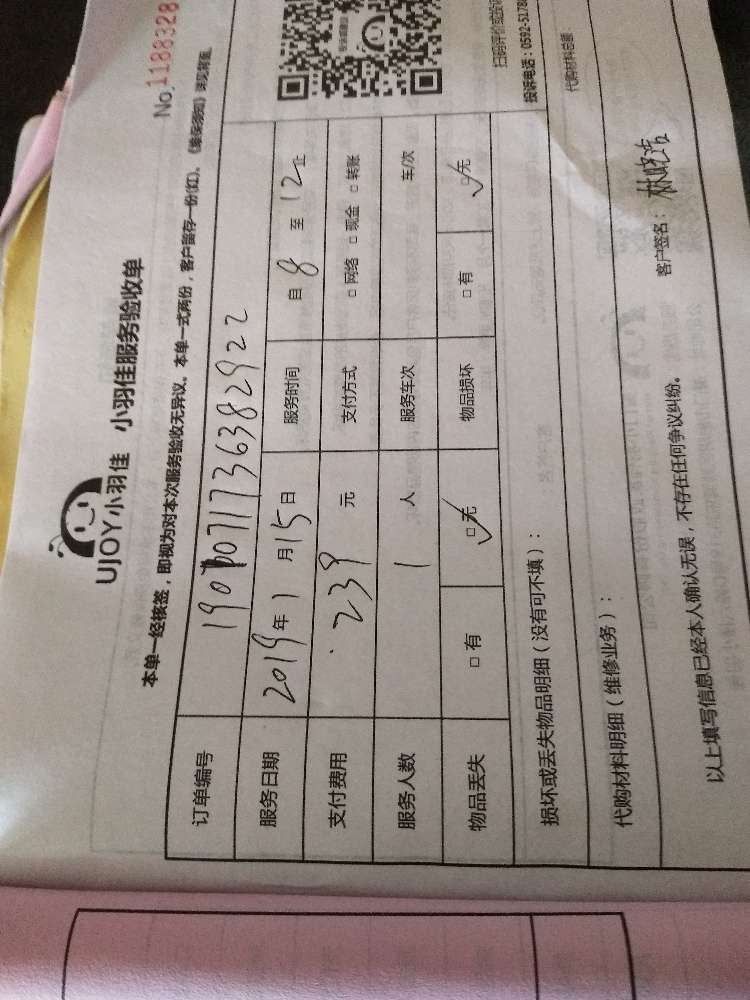 No.1188328
UJOY小羽佳 小羽佳服务验收单
本单一经核签，即视为对本次服务验收无异议。本单一式两份，客户留存一份(红)。《维保须知》详见背面。
订单编号
服务日期 2019年1月15日 服务时间 自8至12止
支付费用 239元 支付方式 □网络 □现金 □转账
服务人数 1人 服务车次 车/次
物品丢失 □有 □无 ✓ 物品损坏 □有 □无 ✓
损坏或丢失物品明细（没有可不填）：
代购材料明细（维修业务）：
代购材料总额
以上填写信息已经本人确认无误，不存在任何争议纠纷。
客户签名：林晓洁
扫码评价或投诉
投诉电话：0592-5178